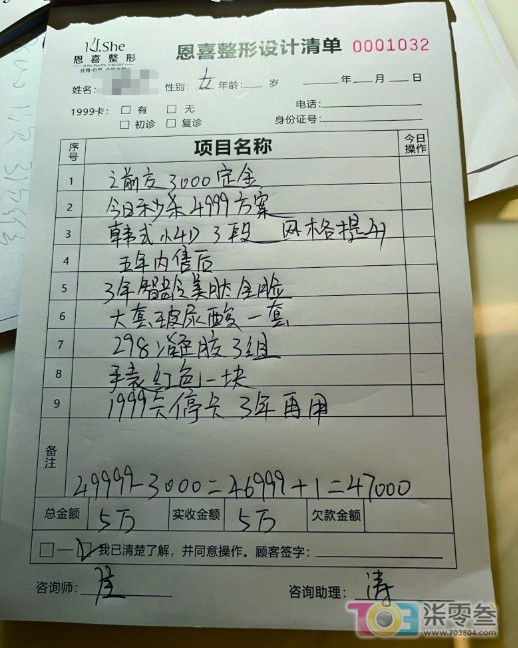 Id.She
恩喜整形
恩喜整形设计清单 0001032
姓名: 性别: 女 年龄: 岁 年 月 日
1999卡: □ 有 □ 无 电话:
□ 初诊 □ 复诊 身份证号:
序号 项目名称 今日操作
1 之前交3000定金
2 今日秒杀4999方案
3 韩式小4D 3段 网格提升
4 五年内售后
5 3年智龄美肤全脸
6 大套玻尿酸一套
7 298凝胶3组
8 手表红色一块
9 1999卡停卡 3年再用
备注 49999-3000=46999+1=47000
总金额 5万 实收金额 5万 欠款金额
□ 一 我已清楚了解，并同意操作。顾客签字:
咨询师: 咨询助理: 涛
柒零叁
www.703804.com